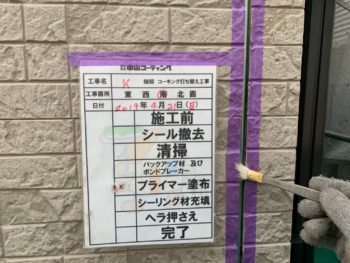 中山コーティング
工事名 K 様邸 コーキング打ち替え工事
工事箇所 東 西 南 北 面
日付 2019年 4月 21日(日)
施工前
シール撤去
清掃
バックアップ材 及び
ボンドブレーカー
プライマー塗布
シーリング材充填
ヘラ押さえ
完了